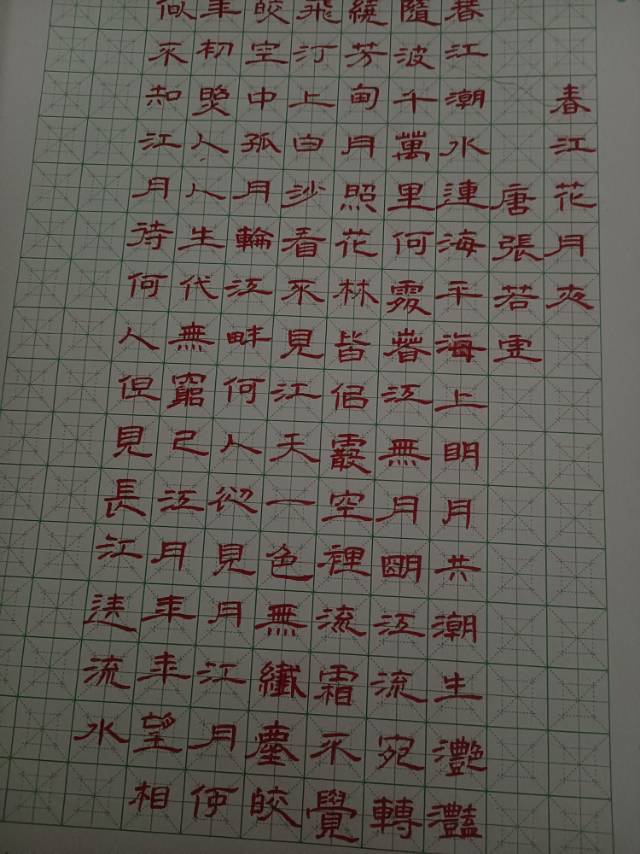 春江花月夜
唐張若虛
春江潮水連海平海上明月共潮生灧灩
隨波千萬里何處春江無月明江流宛轉
繞芳甸月照花林皆佀霰空裡流霜不覺
飛汀上白沙看不見江天一色無纖塵皎
皎空中孤月輪江畔何人初見月江月何
年初照人人生代無窮已江月年年望相
似不知江月待何人但見長江送流水